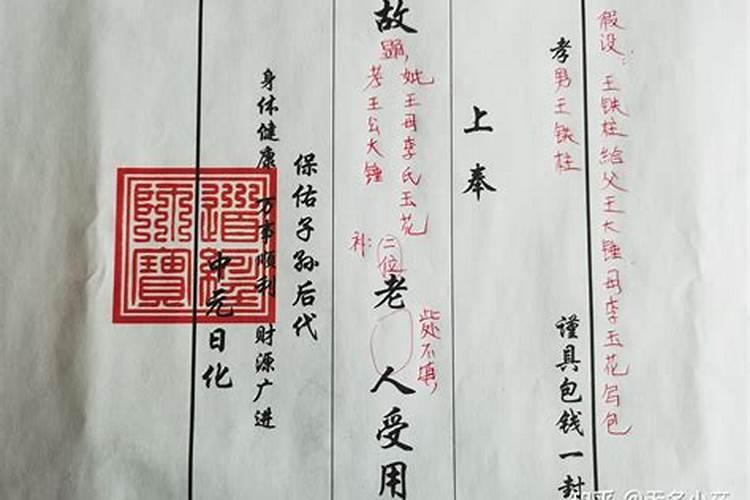 假设:王铁柱给父王大锤母李玉花写包
孝男王铁柱 谨具包钱一封
上奉
故
显,
妣王母李氏玉花
考王公大锤
补:二位
老人受用
此处不填,
保佑子孙后代
身体健康 万事顺利 财源广进
中元日化
道經師寶
知乎